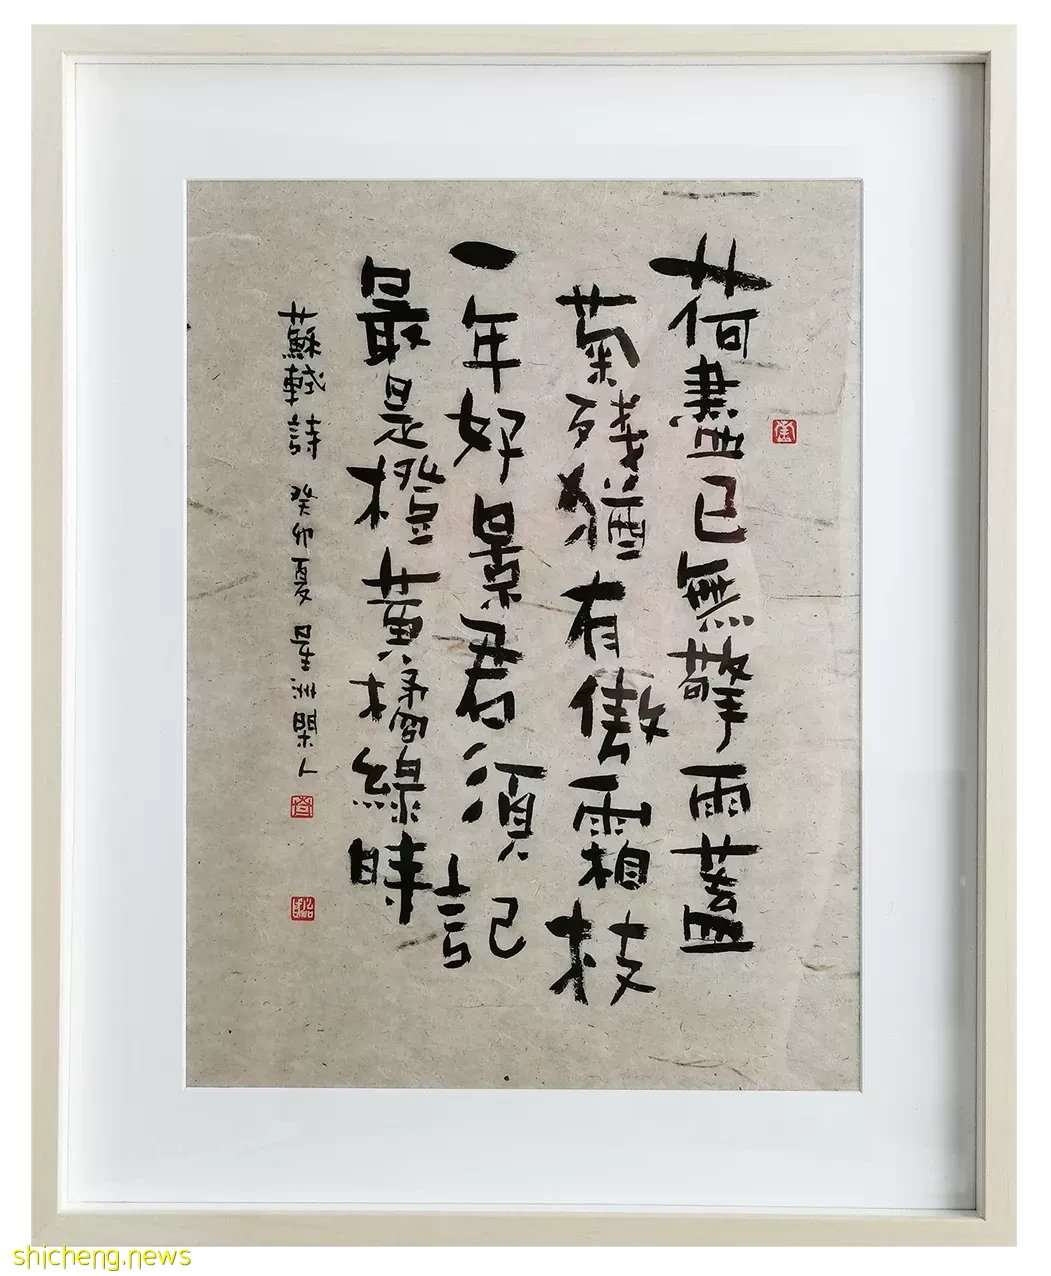 荷盡已無擎雨蓋
菊殘猶有傲霜枝
一年好景君須記
最是橙黃橘綠時
蘇軾詩 癸卯夏 星洲閑人
shicheng.news